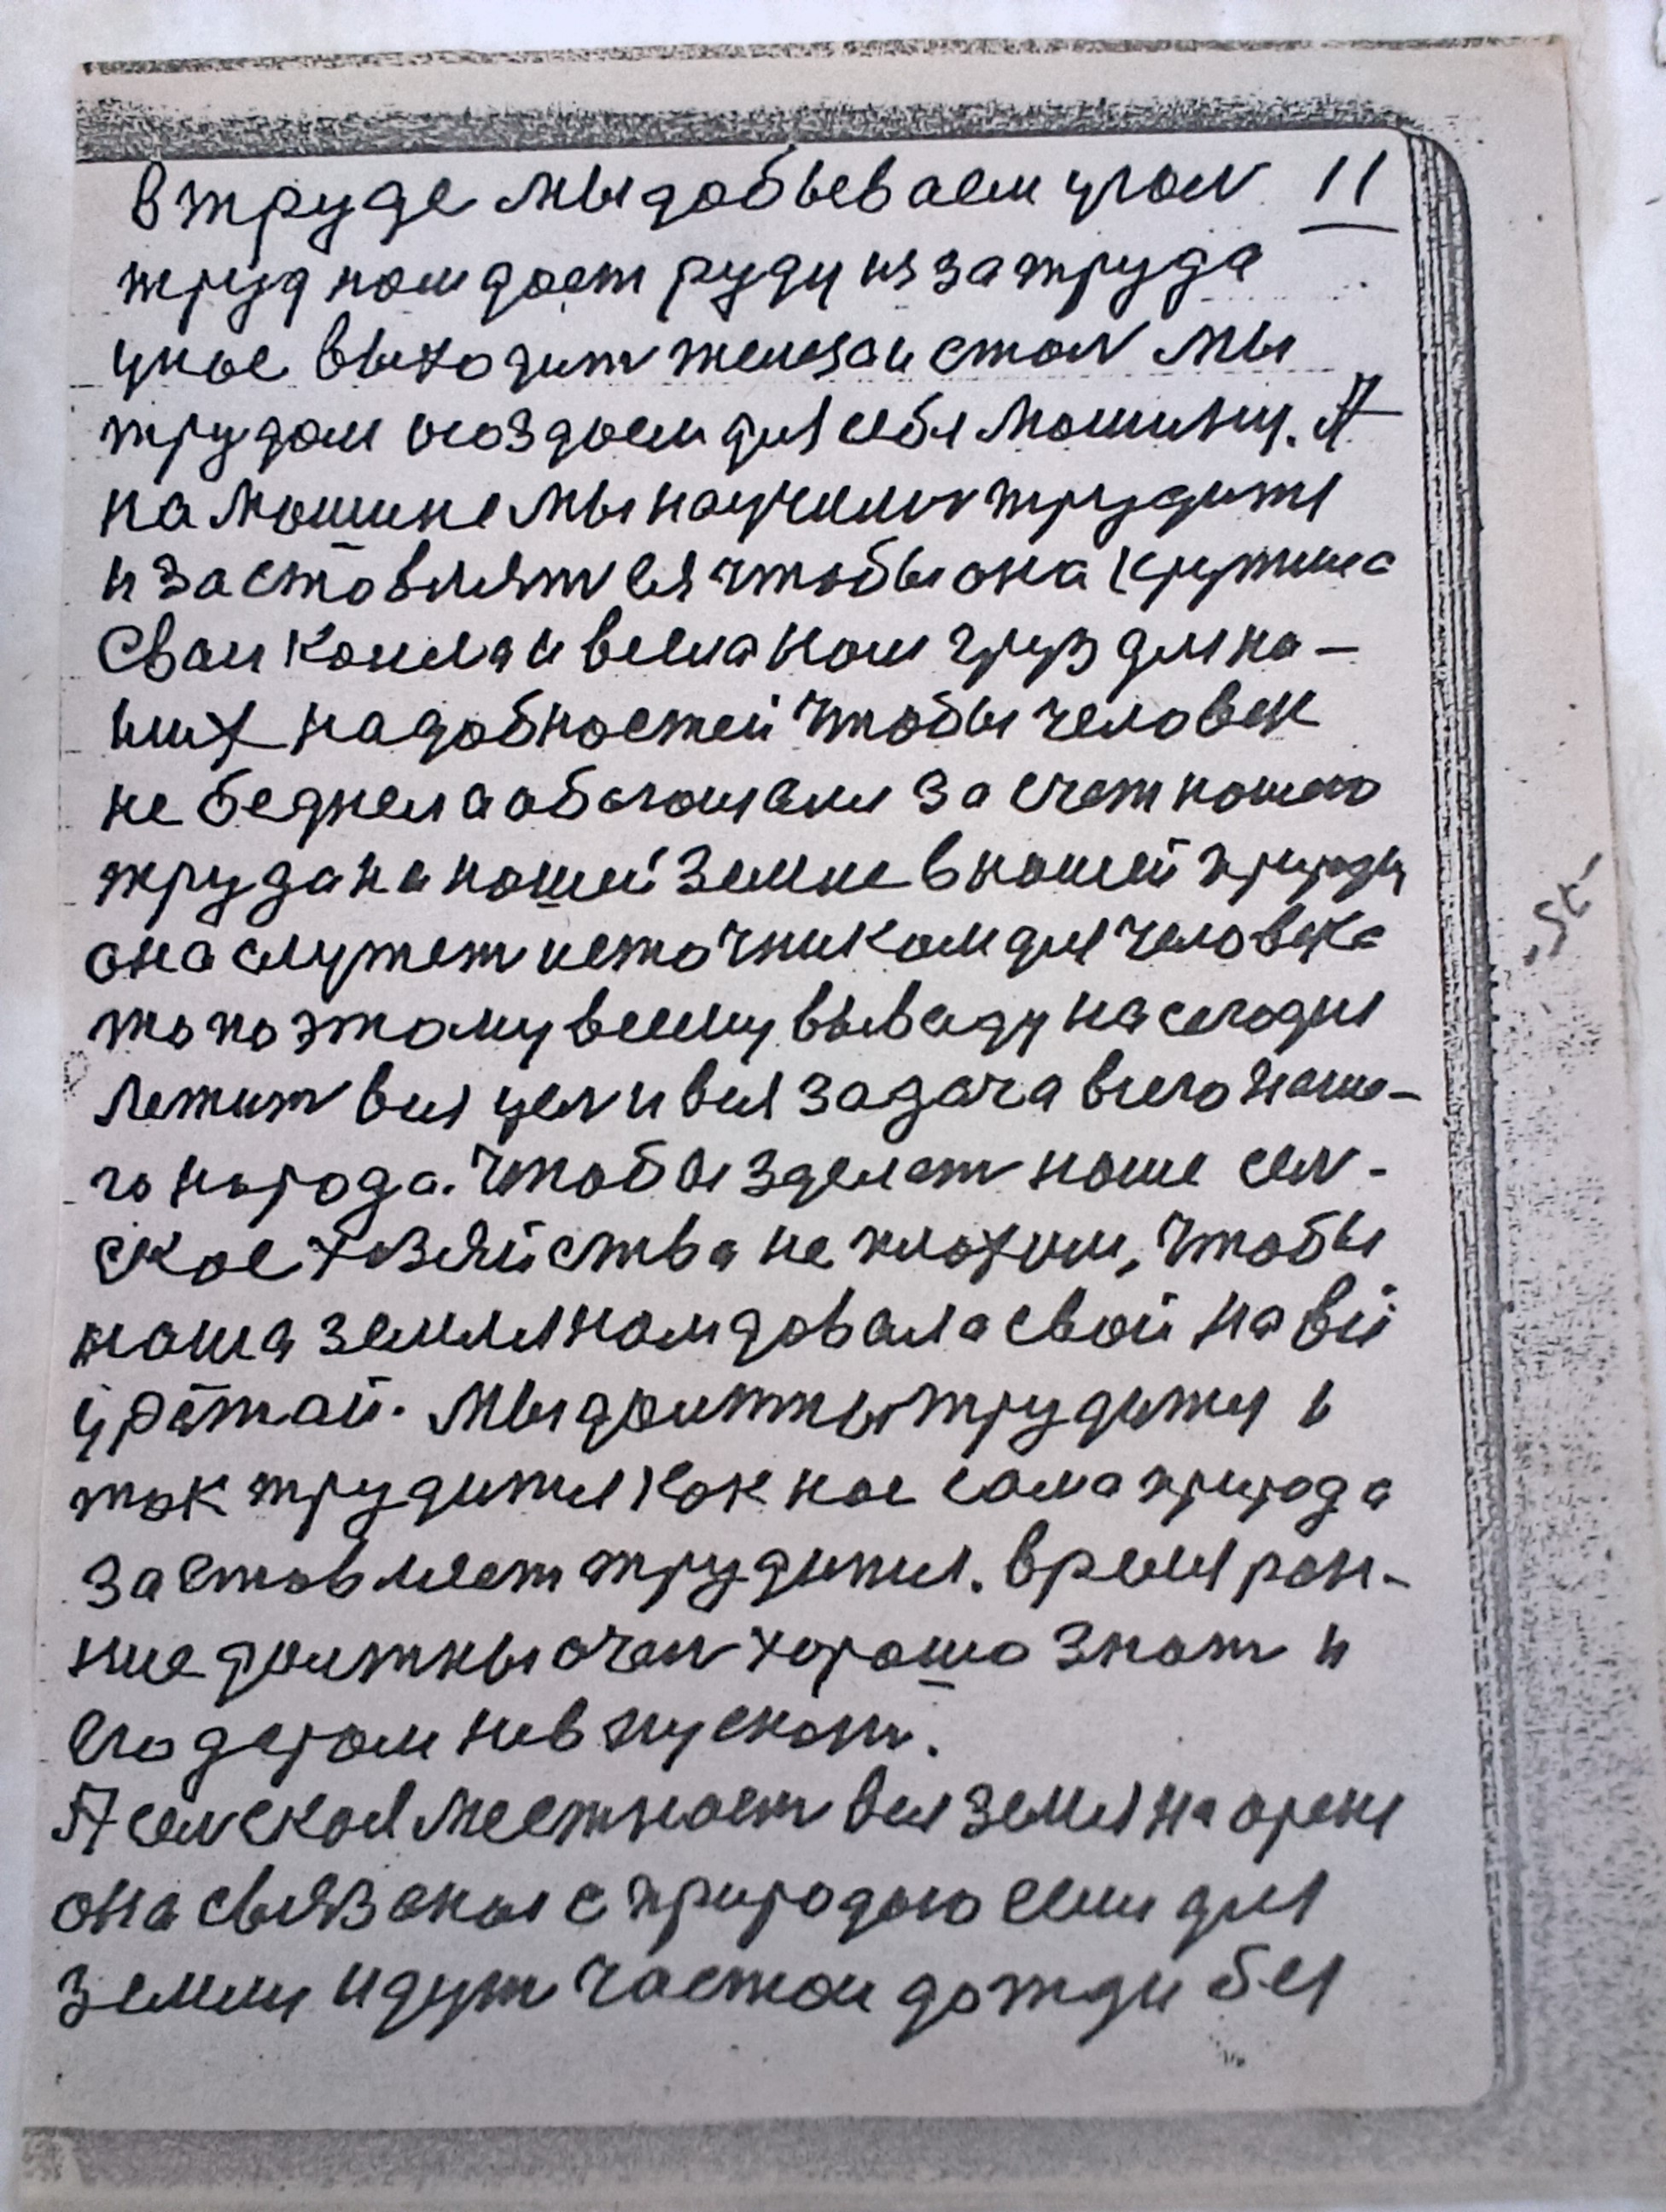 В труде мы добываем угол 11
труд нам дает руду из за труда
у нас выходит железа и стал мы
трудом создаем для себя машину. А
на машине мы научились трудится
и заставлят ея чтобы она крутила
Сваи колела и везла наш груз для на-
ших надобностей чтобы человек
не беднел а обогощался за счет нашего
труда на нашей земле в нашей природы
она служет источником для человека
то по этому всему вываду на сегодня
Лежит вся цел и вся задача всего наше-
го народа. Чтобы зделат наше сел-
ское хозяйства не плохим, Чтобы
наша земля нам довала свой на вси
урожай. Мы должны трудится и
так трудится как нас сама природа
заставляет трудится. время ран-
ние должны очен хорошо знат и
его даром не впускат.
А селская местност вся земля на орена
она связаная с природою если для
земли идут частаи дожди без